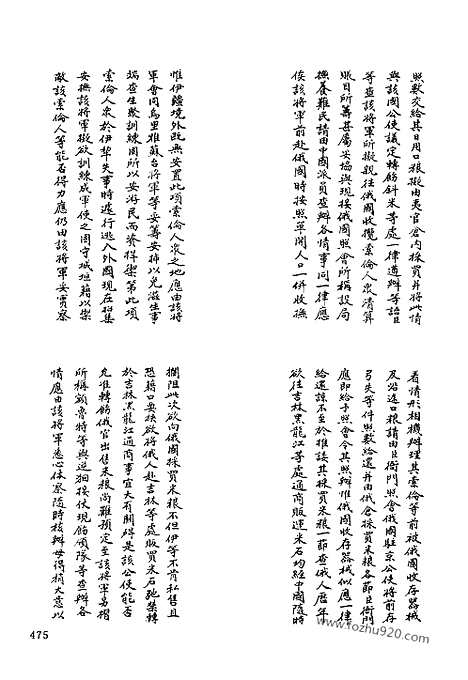 照數交給其日用口粮擬由夷官倉內採買并將此情
與該國公使議定轉飭斜米等處一律遵辦等語臣
等查該將軍所擬親往俄國收攬索倫人眾清算
賬目所籌甚屬妥協與現接俄國照會所稱設局
撫養難民請由中國派員查辦各情事同一律應
俟該將軍前赴俄國時按照單開人口一併收撫
惟伊疆境外既無安置此項索倫人眾之地應由該將
軍會同烏里雅蘇台將軍等妥籌安插以免滋生事
端查生聚訓練固所以安游民而資捍禦第此項
索倫人眾於伊犂失事時遽行逃入外國現在招集
安撫該將軍擬欲訓練成軍使之固守城垣藉以禦
敵該索倫人等能否得力應仍由該將軍妥實察
看情形相機辦理其索倫等前被俄國收存器械
及沿途口粮請由臣衙門照會俄國駐京公使將前存
弓矢等件照數給還并由俄倉採買米粮各節臣衙門
應即給予照會令其照辦惟俄國收存器械似應一律
給還諒不至於推諉其採買米粮一節查俄人歷年
欲往吉林黑龍江等處通商販運米石均經中國隨時
攔阻此次欲向俄國採買米粮不但伊等不肯私售且
恐藉口要挾欲將俄人赴吉林等處販買米石弛禁轉
於吉林黑龍江通商事宜大有關碍是該公使能否
允准轉飭俄官出售米粮尚難預定至該將軍另稱
所稱額魯特等與逆迴接仗現飭領隊等查辦各
情應由該將軍悉心体察隨時核辦毋得稍大意以
475
www.fozhu920.com